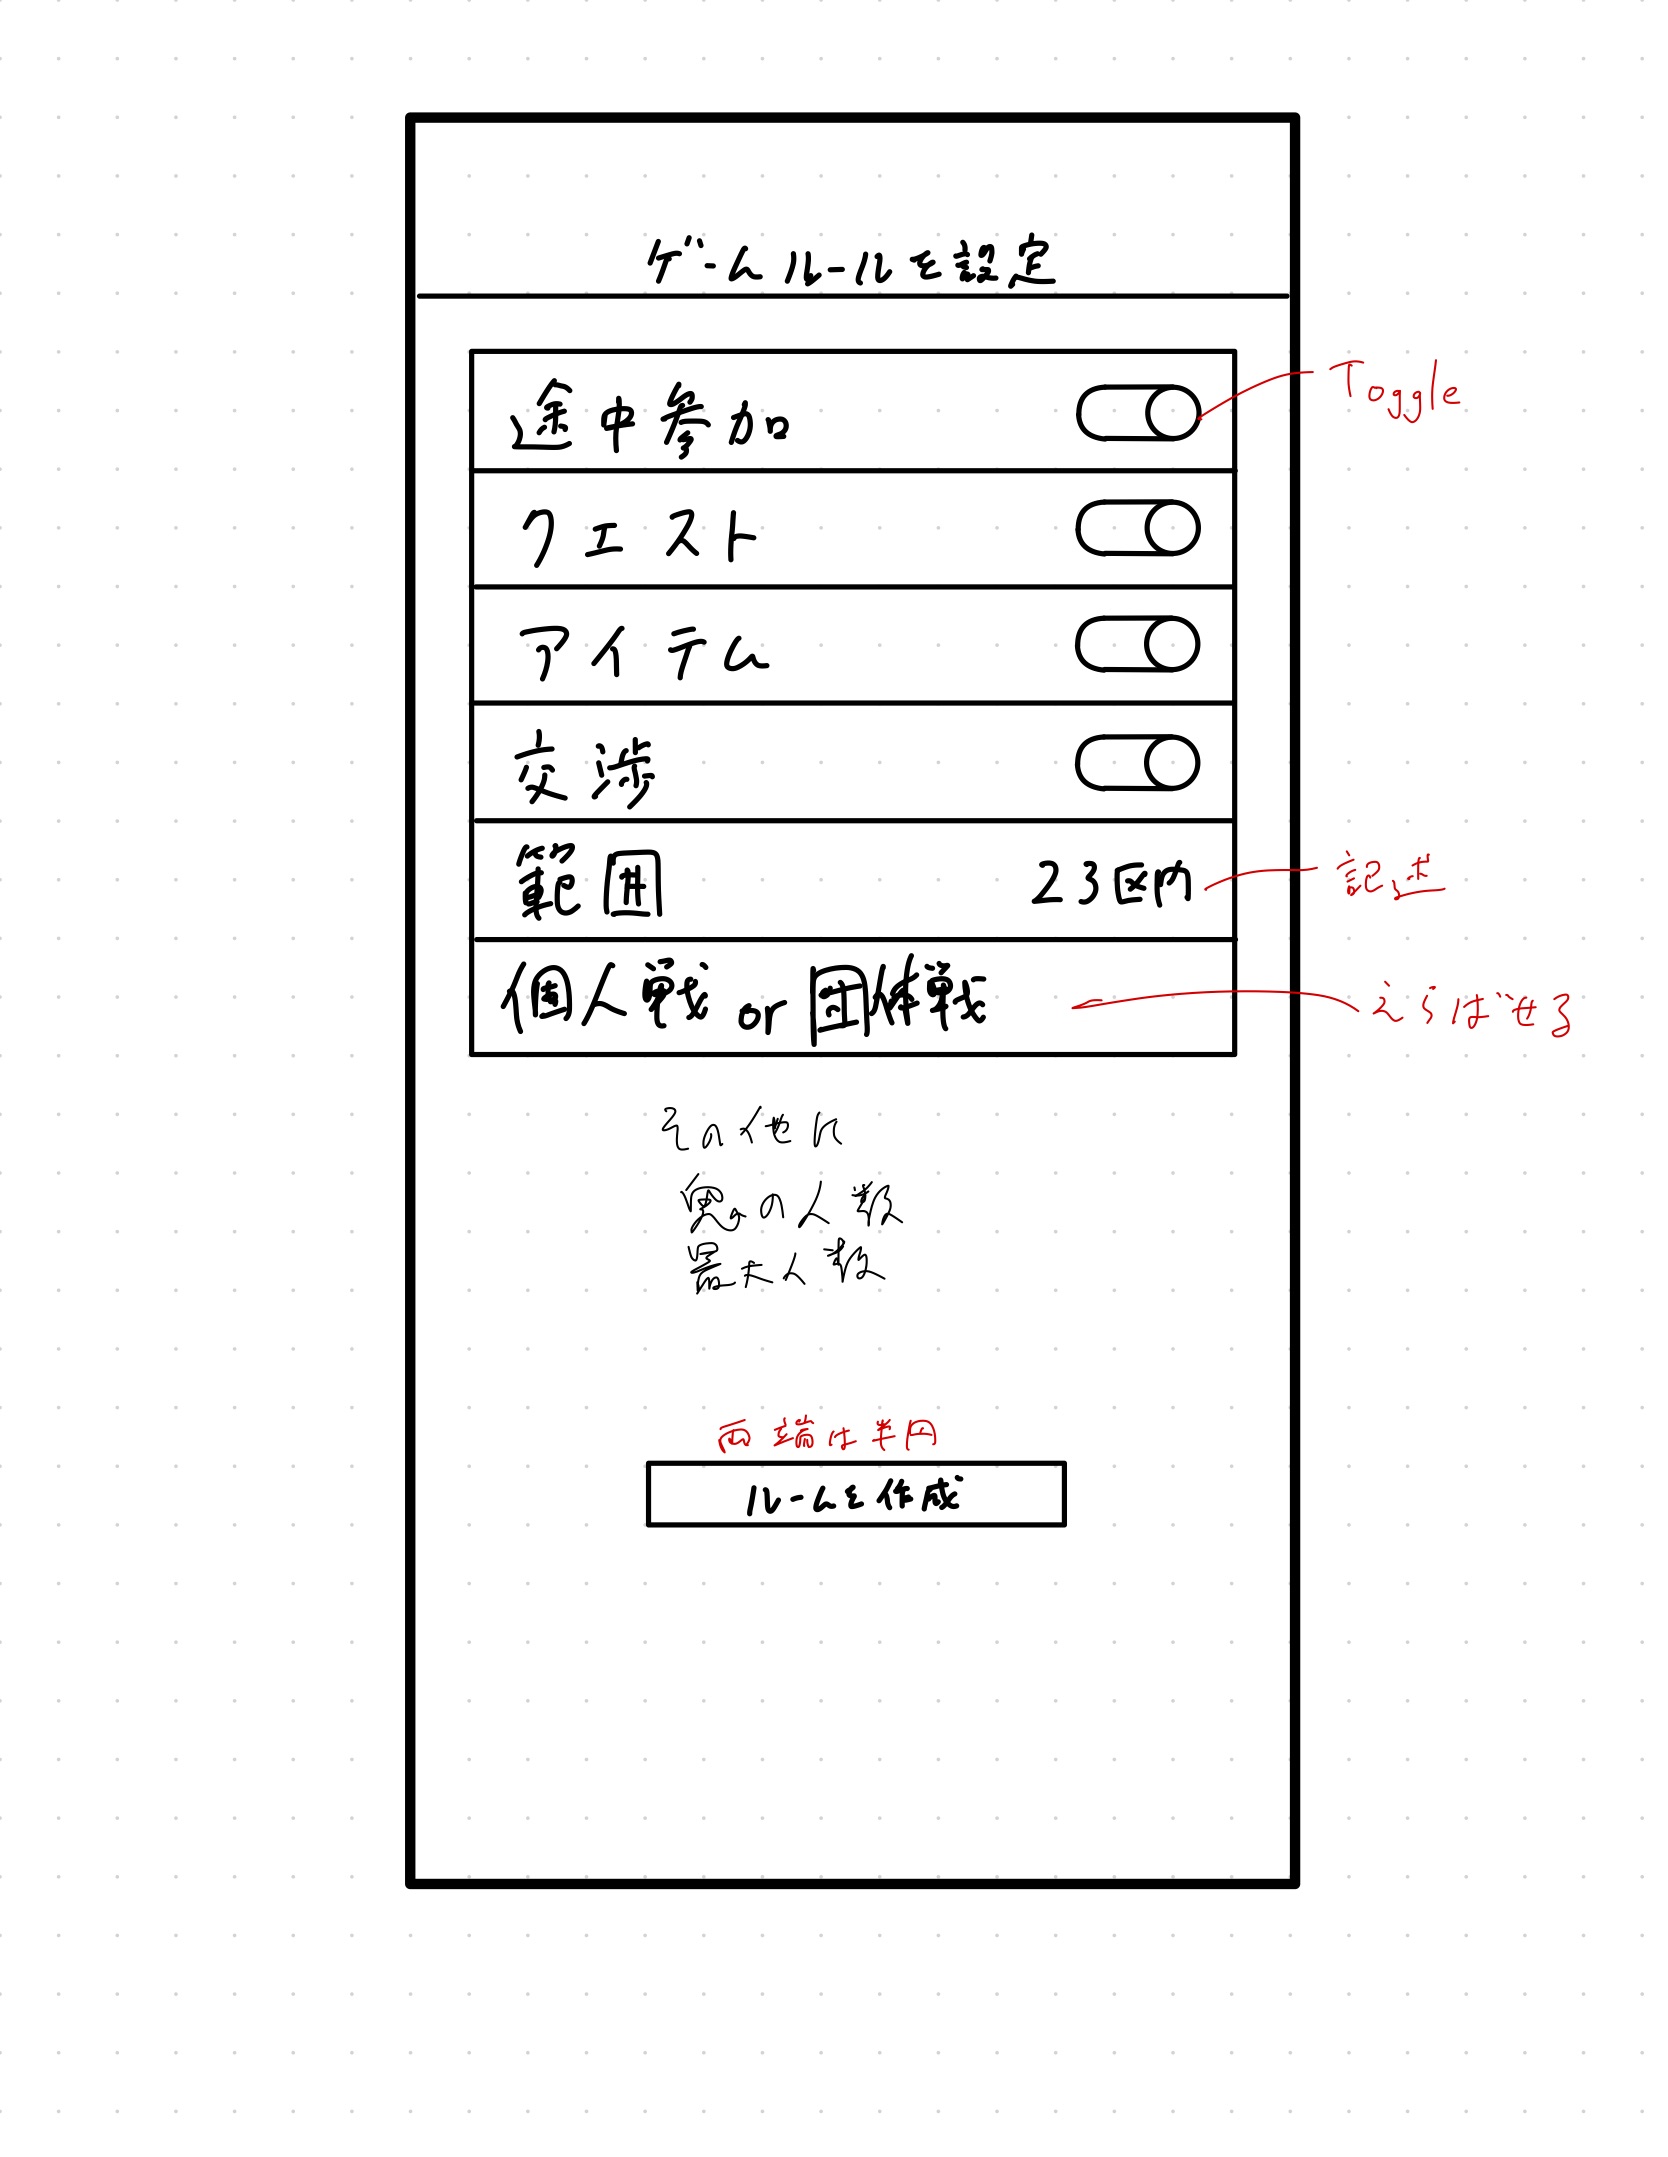 ゲームルールを設定
途中参加
Toggle
クエスト
アイテム
交渉
範囲 23区内
記述
個人戦 or 団体戦
えらばせる
その他に
鬼の人数
最大人数
両端は半円
ルームを作成